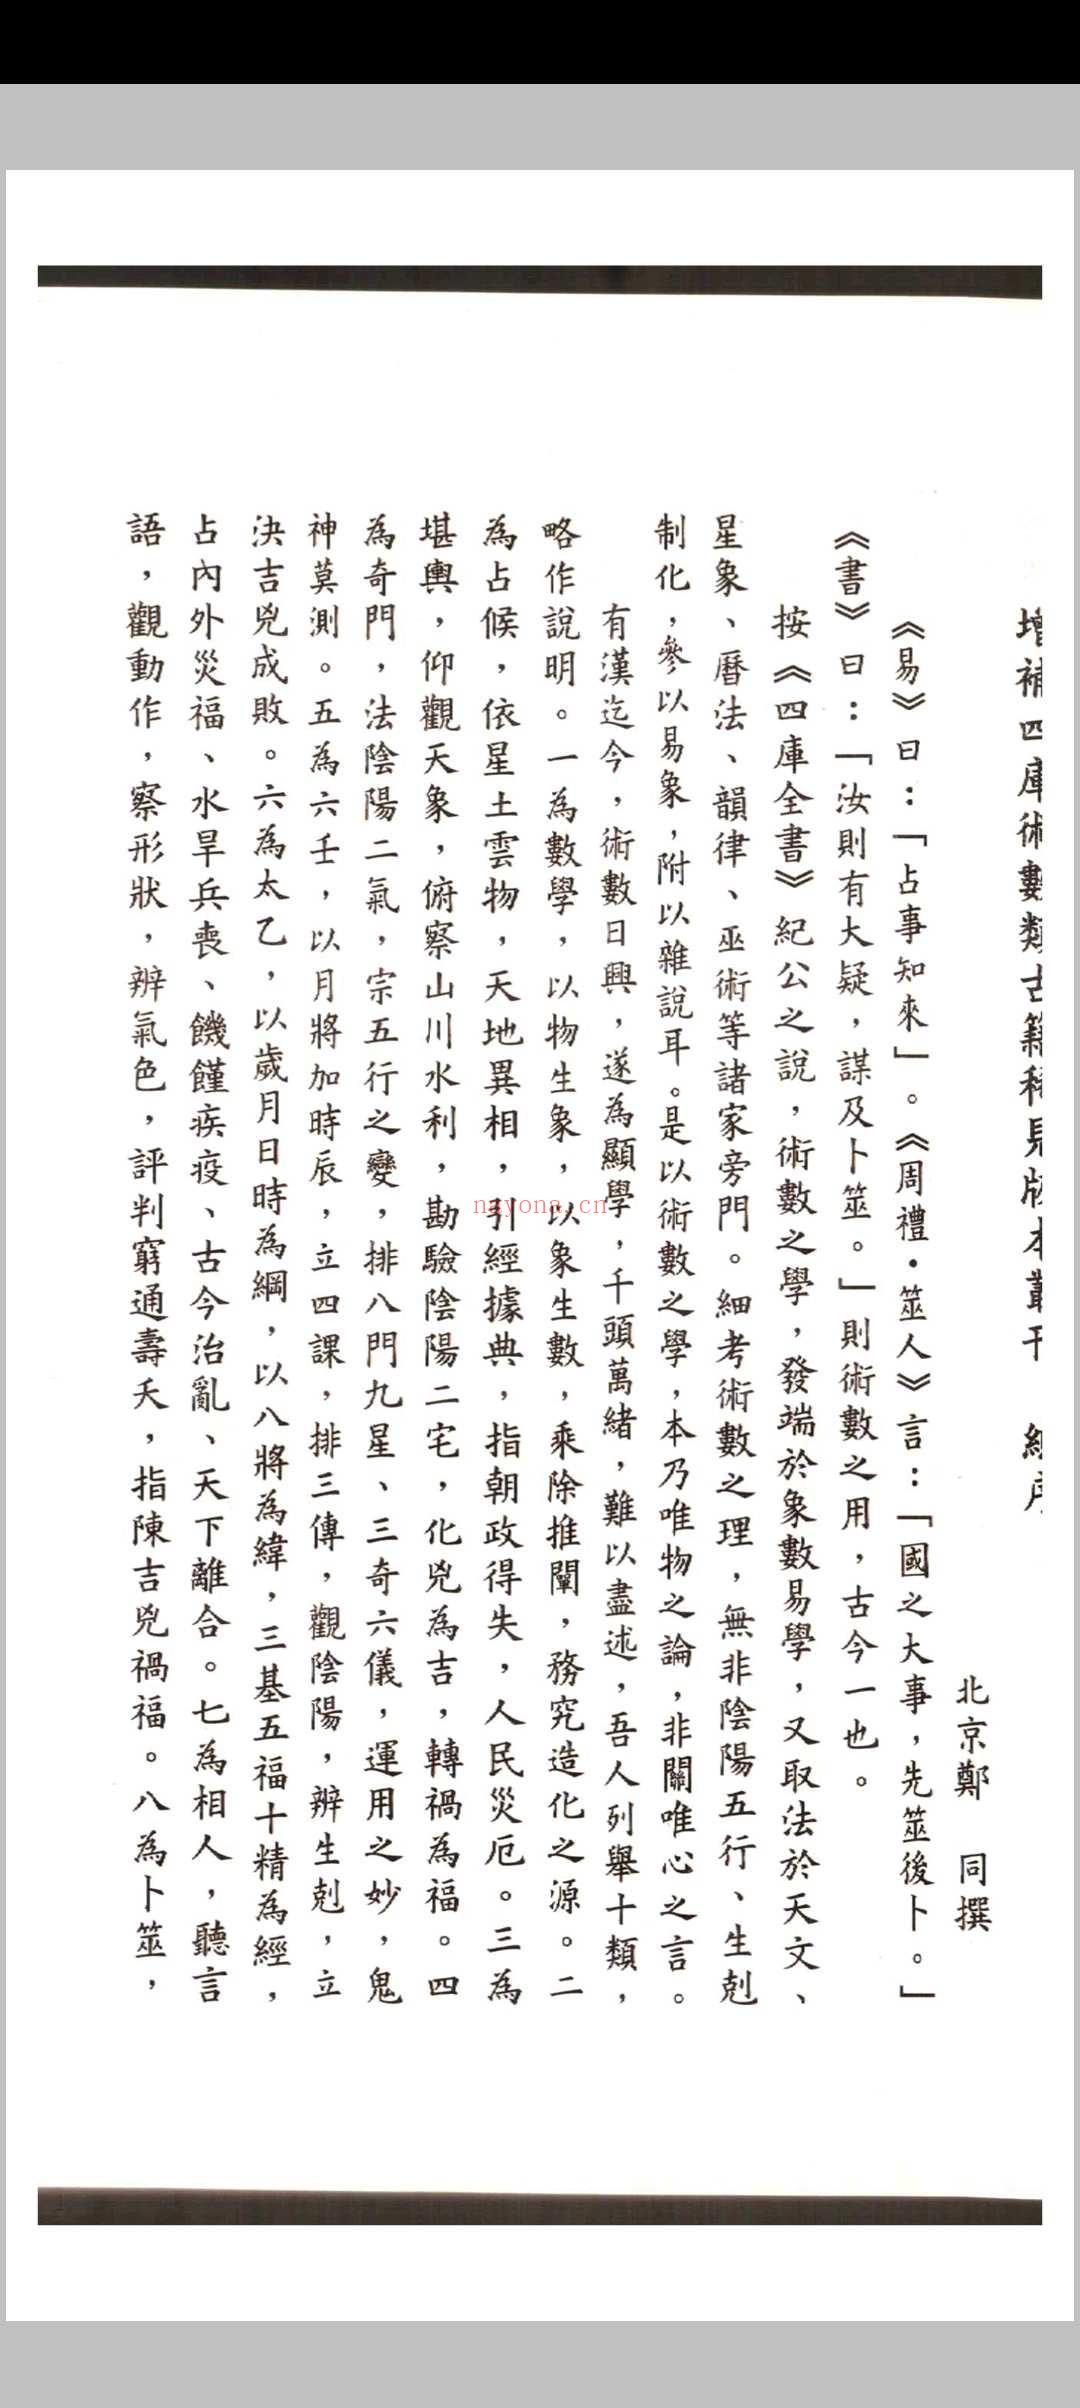 增補四庫術數類古籍稀見版本叢刊 總序
北京鄭 同撰
《易》曰：「占事知來」。《周禮·筮人》言：「國之大事，先筮後卜。」
《書》曰：「汝則有大疑，謀及卜筮。」則術數之用，古今一也。
按《四庫全書》紀公之說，術數之學，發端於象數易學，又取法於天文、
星象、曆法、韻律、巫術等諸家旁門。細考術數之理，無非陰陽五行、生剋
制化，參以易象，附以雜說耳。是以術數之學，本乃唯物之論，非關唯心之言。
有漢迄今，術數日興，遂為顯學，千頭萬緒，難以盡述，吾人列舉十類，
略作說明。一為數學，以物生象，以象生數，乘除推闡，務究造化之源。二
為占候，依星土雲物，天地異相，引經據典，指朝政得失，人民災厄。三為
堪輿，仰觀天象，俯察山川水利，勘驗陰陽二宅，化兇為吉，轉禍為福。四
為奇門，法陰陽二氣，宗五行之變，排八門九星、三奇六儀，運用之妙，鬼
神莫測。五為六壬，以月將加時辰，立四課，排三傳，觀陰陽，辨生剋，立
決吉兇成敗。六為太乙，以歲月日時為綱，以八將為緯，三基五福十精為經，
占內外災福、水旱兵喪、饑饉疾疫、古今治亂、天下離合。七為相人，聽言
語，觀動作，察形狀，辨氣色，評判窮通壽夭，指陳吉兇禍福。八為卜筮，
nayona.cn